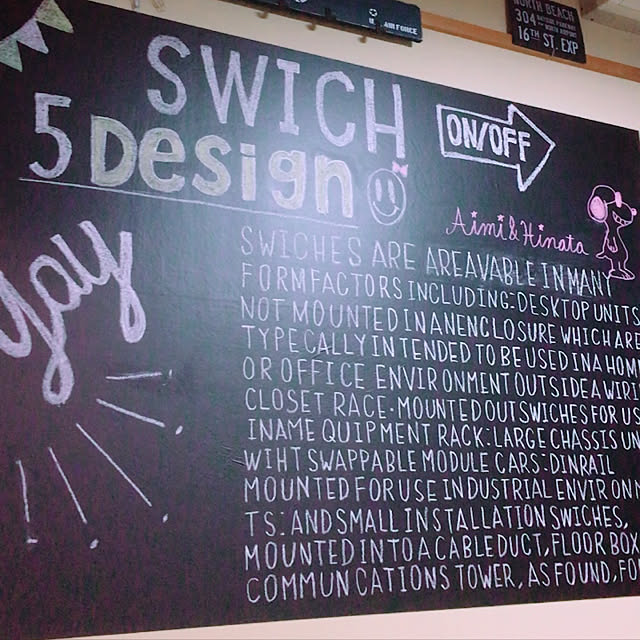 AIR FORCE
NORTH BEACH
304
16TH ST. EXP
SWICH
5 Design
ON/OFF
yay
Aimi & Hinata
SWICHES ARE AREAVABLE IN MANY
FORMFACTORS INCLUDING:DESKTOP UNITS
NOT MOUNTED IN AN ENCLOSURE WHICH ARE
TYPECALLY INTENDED TO BE USED IN A HOM
OR OFFICE ENVIRONMENT OUTSIDE A WIRI
CLOSET RACE-MOUNTED OUT SWICHES FOR US
INAME QUIPMENT RACK:LARGE CHASSIS UN
WIHT SWAPPABLE MODULE CARS:DINRAIL
MOUNTED FOR USE INDUSTRIAL ENVIRONM
TS:AND SMALL INSTALLATION SWICHES,
MOUNTED INTO A CABLE DUCT, FLOOR BOX
COMMUNCATIONS TOWER, AS FOUND, FO